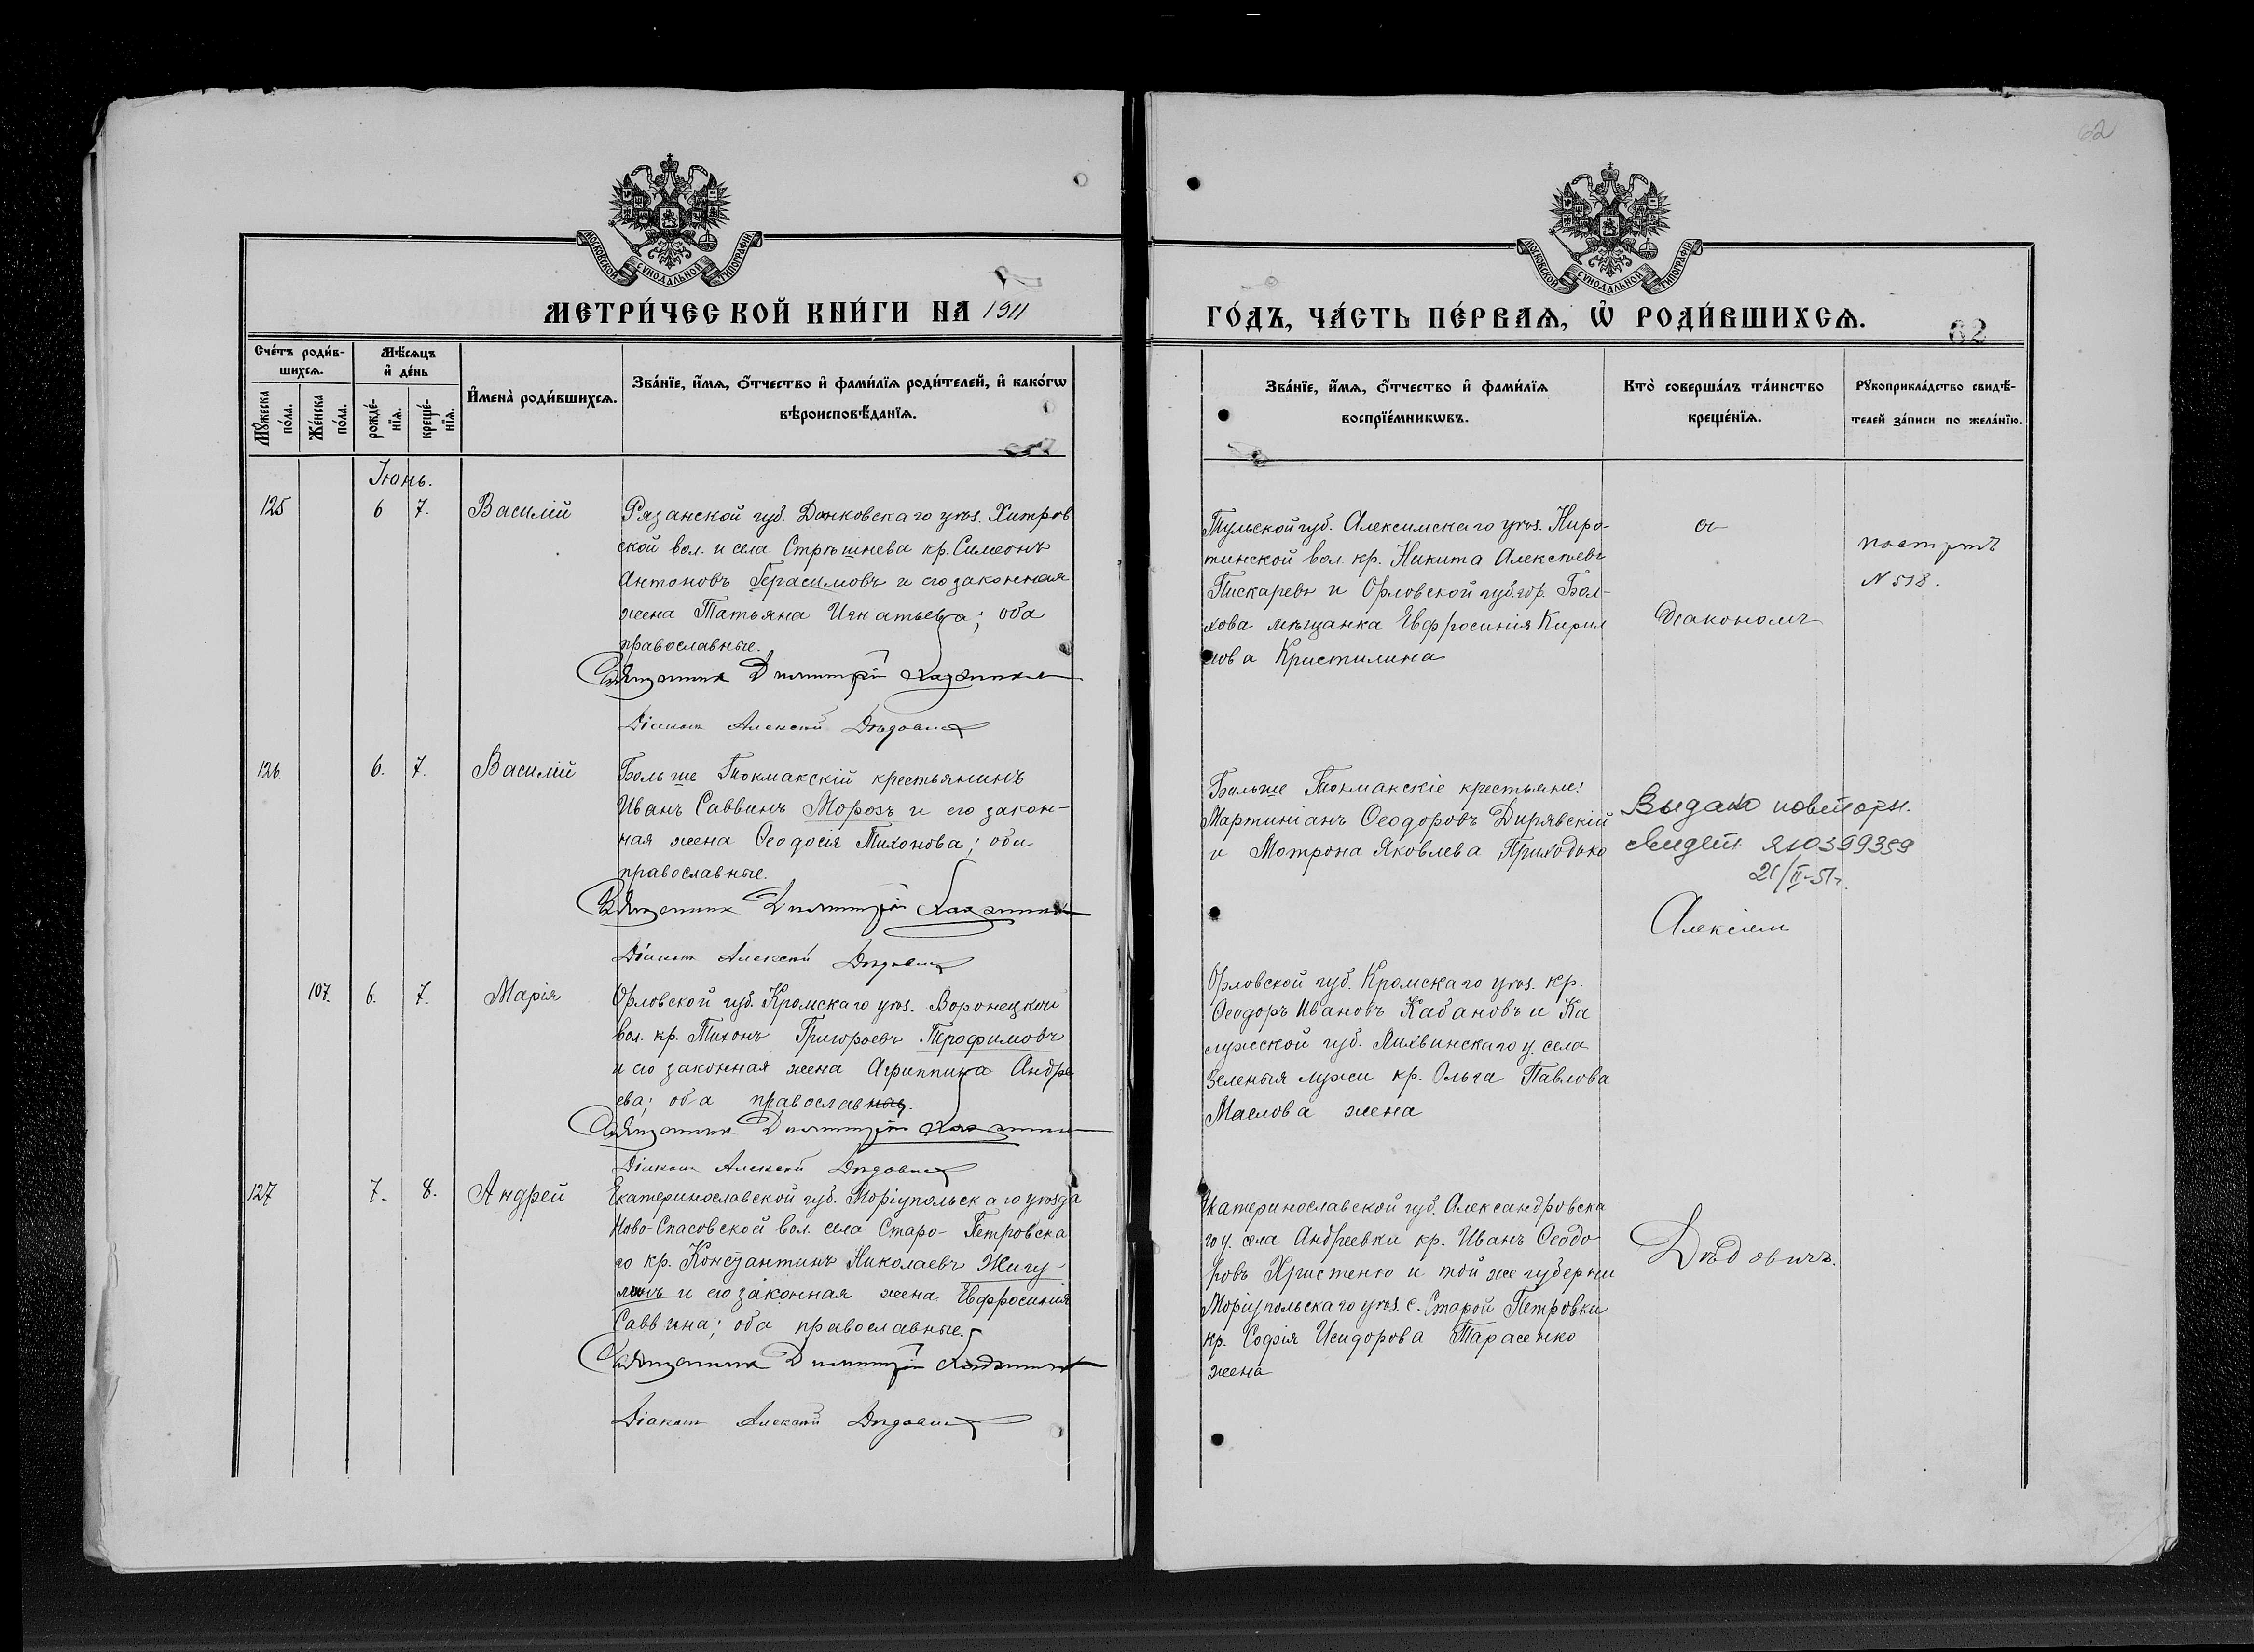 62
МОСКОВСКОЙ СУНОДАЛЬНОЙ ТИПОГРАФІИ
МЕТРИ́ЧЕСКОЙ КНИ́ГИ НА 1911
Сче́тъ роди́в-
шихсѧ.
Мꙋ́жеска по́ла.
Же́нска по́ла.
Мѣ́сѧцъ
и҆ де́нь
рожде́-
нїѧ.
креще́-
нїѧ.
И҆мена̀ роди́вшихсѧ.
Зва́нїе, и҆́мѧ, ѻ҆́тчество и҆ фами́лїѧ роди́телей, и҆ како́гѡ
вѣроисповѣ́данїѧ.
Іюнь.
125 6 7. Василій
Рязанской губ. Данковскаго уѣз. Хитров
ской вол. и села Стрѣшнева кр. Симеонъ
Антоновъ Герасимовъ и его законная
жена Татьяна Игнатьева; оба
православные.
Священникъ Димитрій
Діаконъ Алексѣй Дѣдовичъ
126. 6. 7. Василій
Больше Токмакскій крестьянинъ
Иванъ Саввинъ Морозъ и его закон-
ная жена Ѳеодосія Тихонова; оба
православные.
Священникъ Димитрій
Діаконъ Алексѣй Дѣдовичъ
107. 6. 7. Марія
Орловской губ. Кромскаго уѣз. Воронецкой
вол. кр. Тихонъ Григорьевъ Трофимовъ
и его законная жена Агриппина Андре
ева; оба православные.
Священникъ Димитрій
Діаконъ Алексѣй Дѣдовичъ
127 7. 8. Андрей
Екатеринославской губ. Моріупольскаго уѣзда
Ново-Спасовской вол. села Старо-Петровска
го кр. Константинъ Николаевъ Жигу-
линъ и его законная жена Евфросинія
Саввина; оба православные.
Священникъ Димитрій
Діаконъ Алексѣй Дѣдовичъ
МОСКОВСКОЙ СУНОДАЛЬНОЙ ТИПОГРАФІИ
ГО́ДЪ, ЧА́СТЬ ПЕ́РВАѦ, Ѽ РОДИ́ВШИХСѦ.
62
Зва́нїе, и҆́мѧ, ѻ҆́тчество и҆ фами́лїѧ
воспрїе́мникѡвъ.
Кто̀ соверша́лъ та́инство
креще́нїѧ.
Рꙋкоприкла́дство свидѣ́-
телей за́писи по жела́нїю.
Тульской губ. Алексинскаго уѣз. Широ-
тинской вол. кр. Никита Алексѣевъ
Пискаревъ и Орловской губ. гор. Бол-
хова мѣщанка Евфросинія Кирил
лова Кристилина
съ
Діакономъ
N 518.
Больше Токмакскіе крестьяне:
Мартиніанъ Ѳеодоровъ Дирявскій
и Мотрона Яковлева Приходько
Выдано повторн.
свидет. ЯЮ 399359
21/II-51 г.
Алексіем
Орловской губ. Кромскаго уѣз. кр.
Ѳеодоръ Ивановъ Кабановъ и Ка
лужской губ. Лихвинскаго у. села
Зеленыя лужи кр. Ольга Павлова
Маслова жена
Екатеринославской губ. Александровска
го у. села Андреевки кр. Иванъ Ѳеодо
ровъ Христенко и той же губерніи
Моріупольскаго уѣз. с. Старой Петровки
кр. Софія Исидорова Тарасенко
жена
Дѣдовичъ.